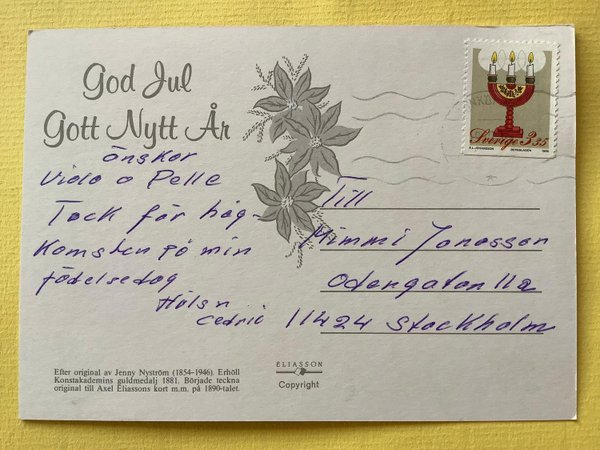 God Jul
Gott Nytt År
önskar
Vida o Pelle
Tack för håg-
komsten på min
födelsedag
Hälsn
Cedric
Till
Mimmi Jonasson
Odengatan 11a
11424 Stockholm
Sverige 3.35
ELIASSON
Copyright
Efter original av Jenny Nyström (1854–1946). Erhöll
Konstakademins guldmedalj 1881. Började teckna
original till Axel Eliassons kort m.m. på 1890-talet.